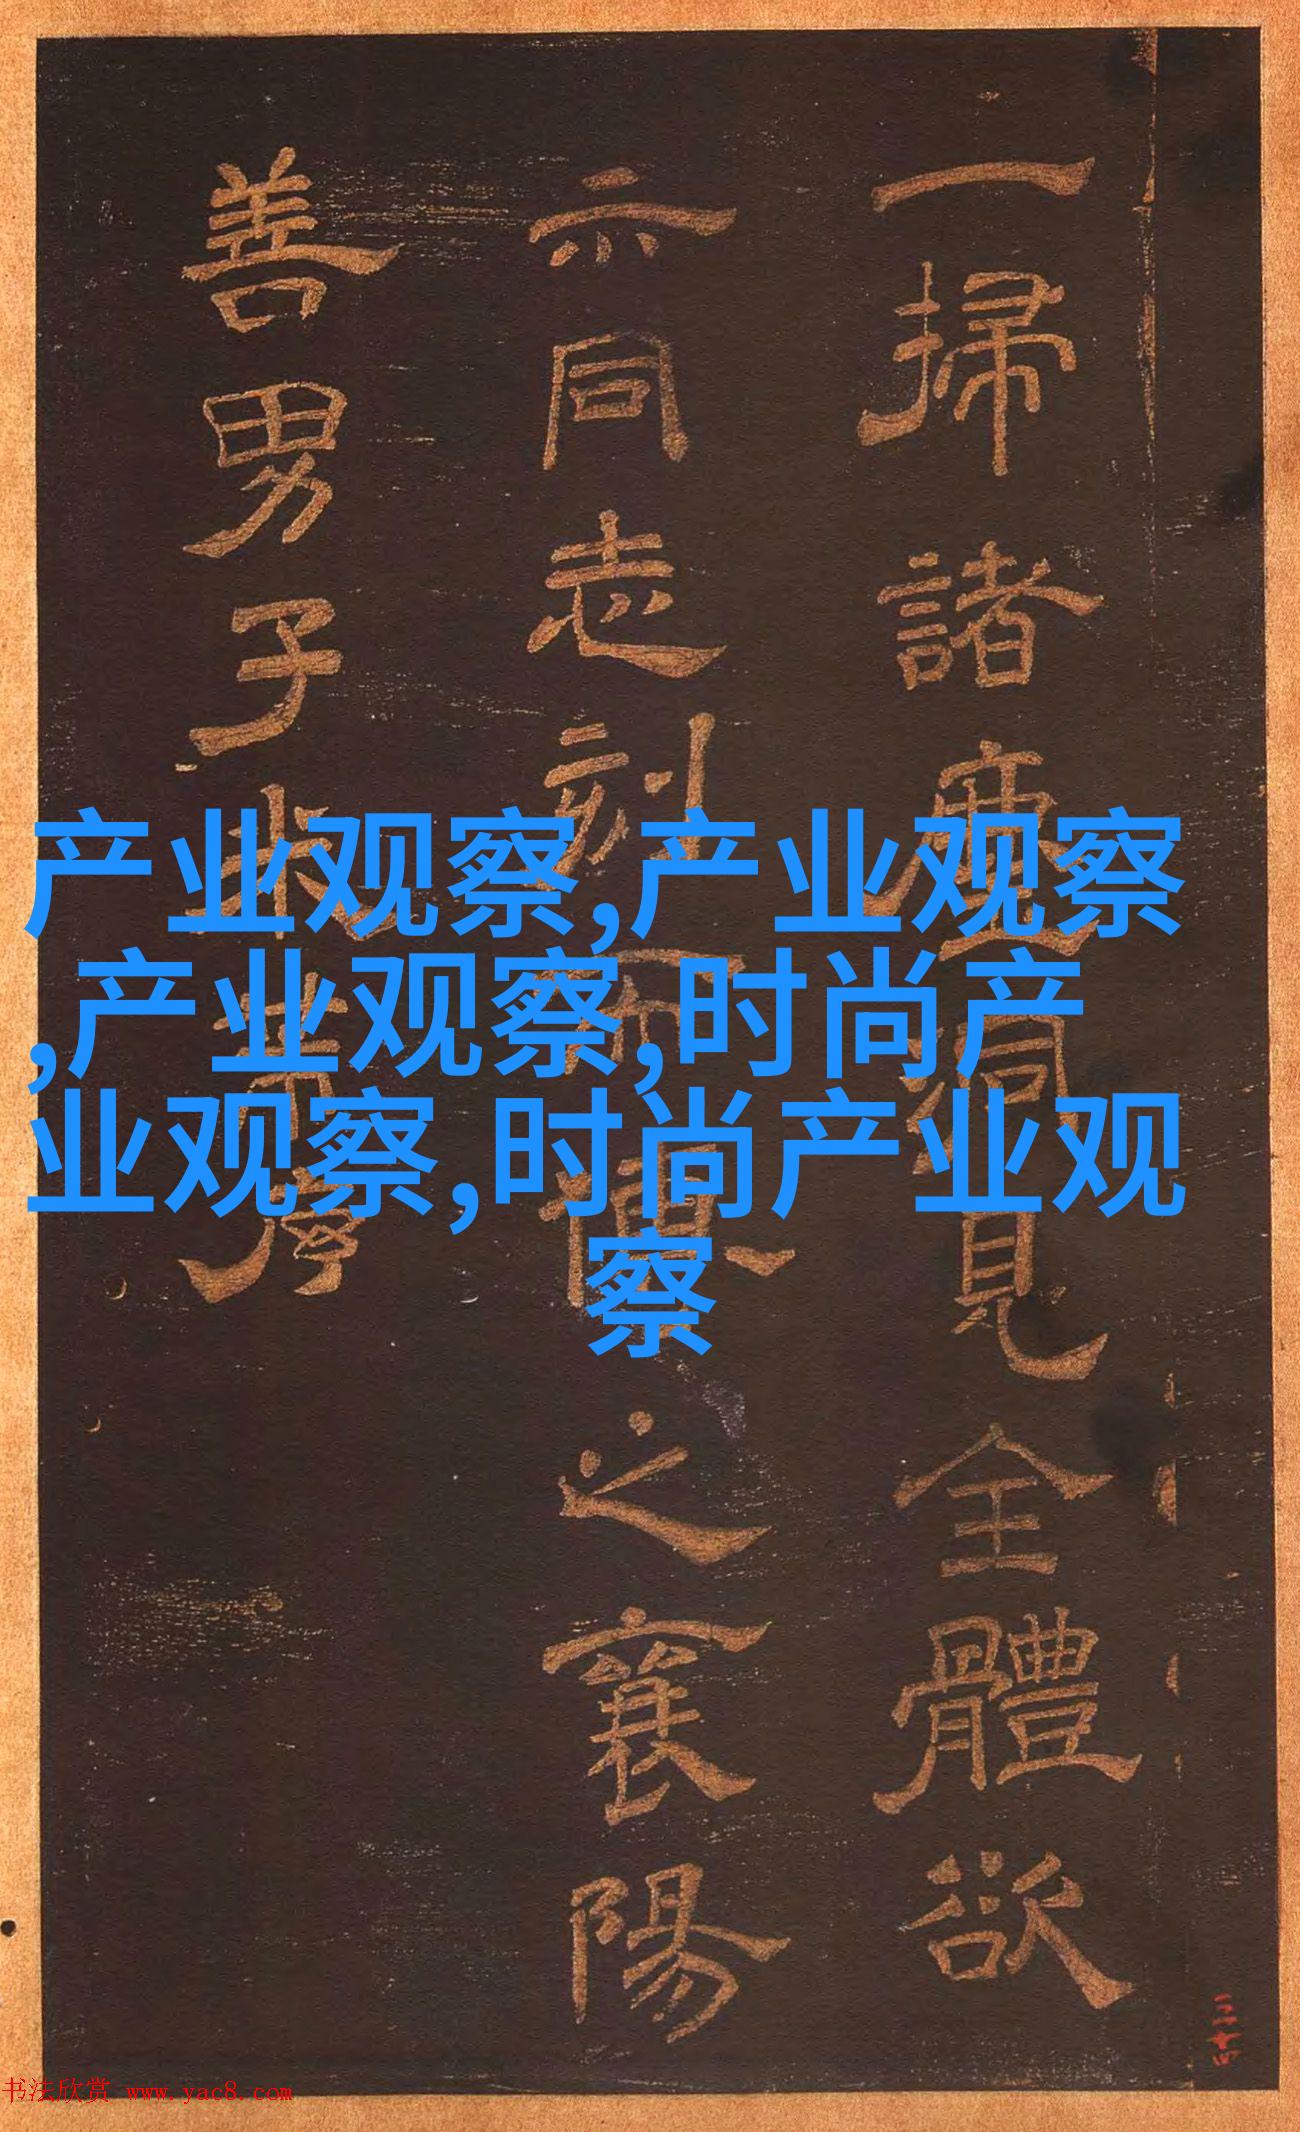 一掃諸塵洞見全體欲
示同志刻而之襄陽
善男子米芾
产业观察,产业观察
,产业观察,时尚产
业观察,时尚产业观
察
书法欣赏 www.yac8.com